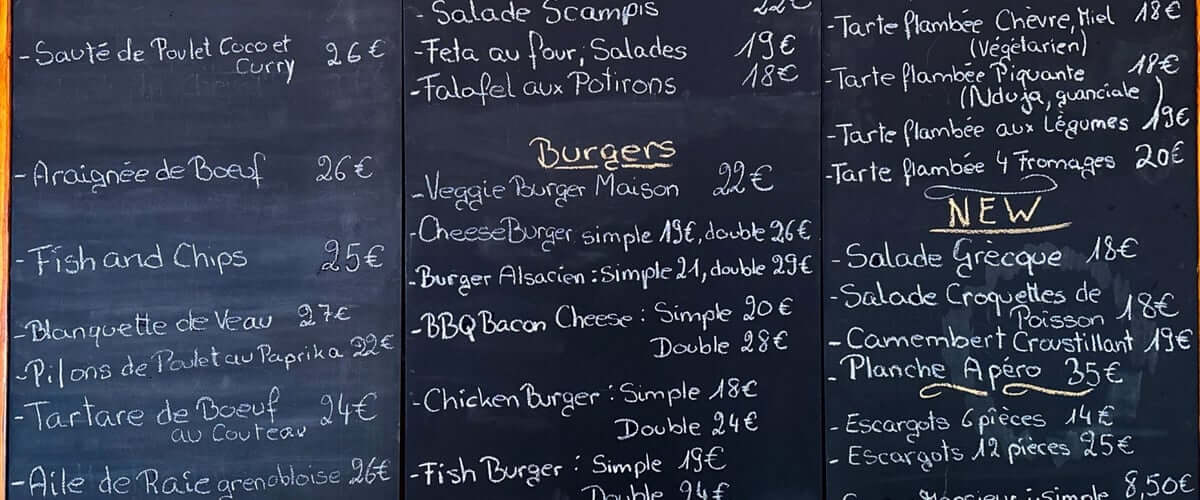 - Sauté de Poulet Coco et 26€
Curry
- Araignée de Boeuf 26€
- Fish and Chips 25€
- Blanquette de Veau 27€
- Pilons de Poulet au Paprika 22€
- Tartare de Boeuf 24€
au Couteau
- Aile de Raie grenobloise 26€
- Salade Scampis 22€
- Feta au four, Salades 19€
- Falafel aux Potirons 18€
Burgers
- Veggie Burger Maison 22€
- CheeseBurger simple 19€, double 26€
- Burger Alsacien : Simple 21, double 29€
- BBQ Bacon Cheese : Simple 20€
Double 28€
- Chicken Burger : Simple 18€
Double 24€
- Fish Burger : Simple 19€
Double 24€
- Tarte flambée Chèvre, Miel 18€
(Végétarien)
- Tarte flambée Piquante 18€
(Nduja, guanciale)
- Tarte flambée aux Légumes 19€
- Tarte flambée 4 Fromages 20€
NEW
- Salade Grècque 18€
- Salade Croquettes de
Poisson 18€
- Camembert Croustillant 19€
- Planche Apéro 35€
- Escargots 6 pièces 14€
- Escargots 12 pièces 25€
simple 8,50€